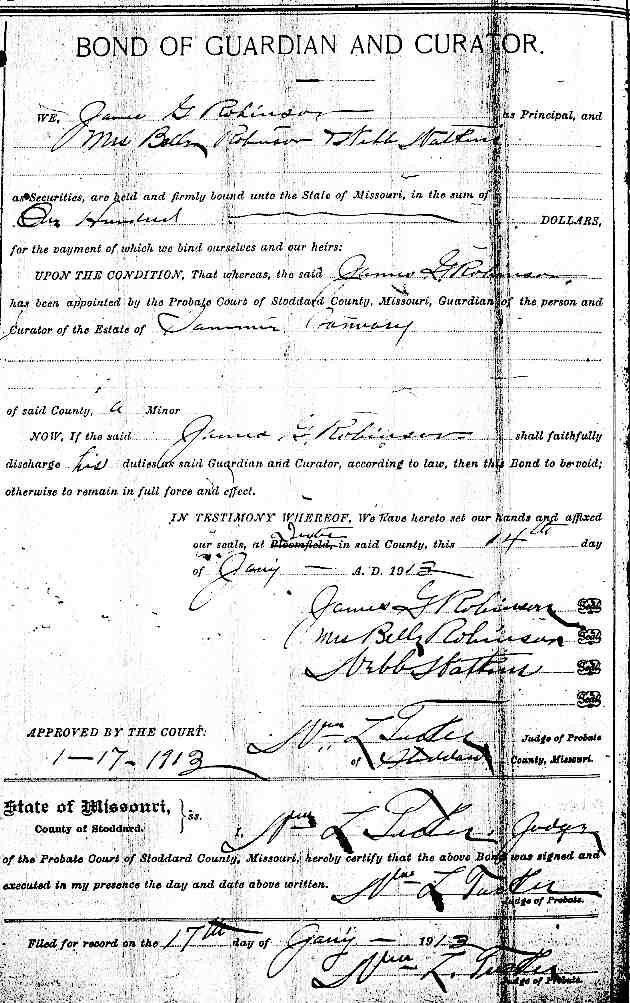 BOND OF GUARDIAN AND CURATOR.
WE, James G Robinson as Principal, and
Mrs Bell Robinson & Webb Watkins
as Securities, are held and firmly bound unto the State of Missouri, in the sum of
One Hundred DOLLARS,
for the payment of which we bind ourselves and our heirs:
UPON THE CONDITION, That whereas, the said James G Robinson
has been appointed by the Probate Court of Stoddard County, Missouri, Guardian of the person and
Curator of the Estate of
of said County, a Minor
NOW, If the said James G. Robinson shall faithfully
discharge his duties as said Guardian and Curator, according to law, then this Bond to be void;
otherwise to remain in full force and effect.
IN TESTIMONY WHEREOF, We have hereto set our hands and affixed
our seals, at Bloomfield, in said County, this 14th day
of Jany A. D. 1913
James G Robinson Seal
Mrs Bell Robinson Seal
Webb Watkins Seal
Seal
APPROVED BY THE COURT: Wm L Tucker Judge of Probate
1-17-1913 of Stoddard County, Missouri.
State of Missouri, } ss.
County of Stoddard.
I, Wm L Tucker, Judge
of the Probate Court of Stoddard County, Missouri, hereby certify that the above Bond was signed and
executed in my presence the day and date above written. Wm L Tucker
Judge of Probate.
Filed for record on the 17th day of Jany 1913
Wm L. Tucker
Judge of Probate.